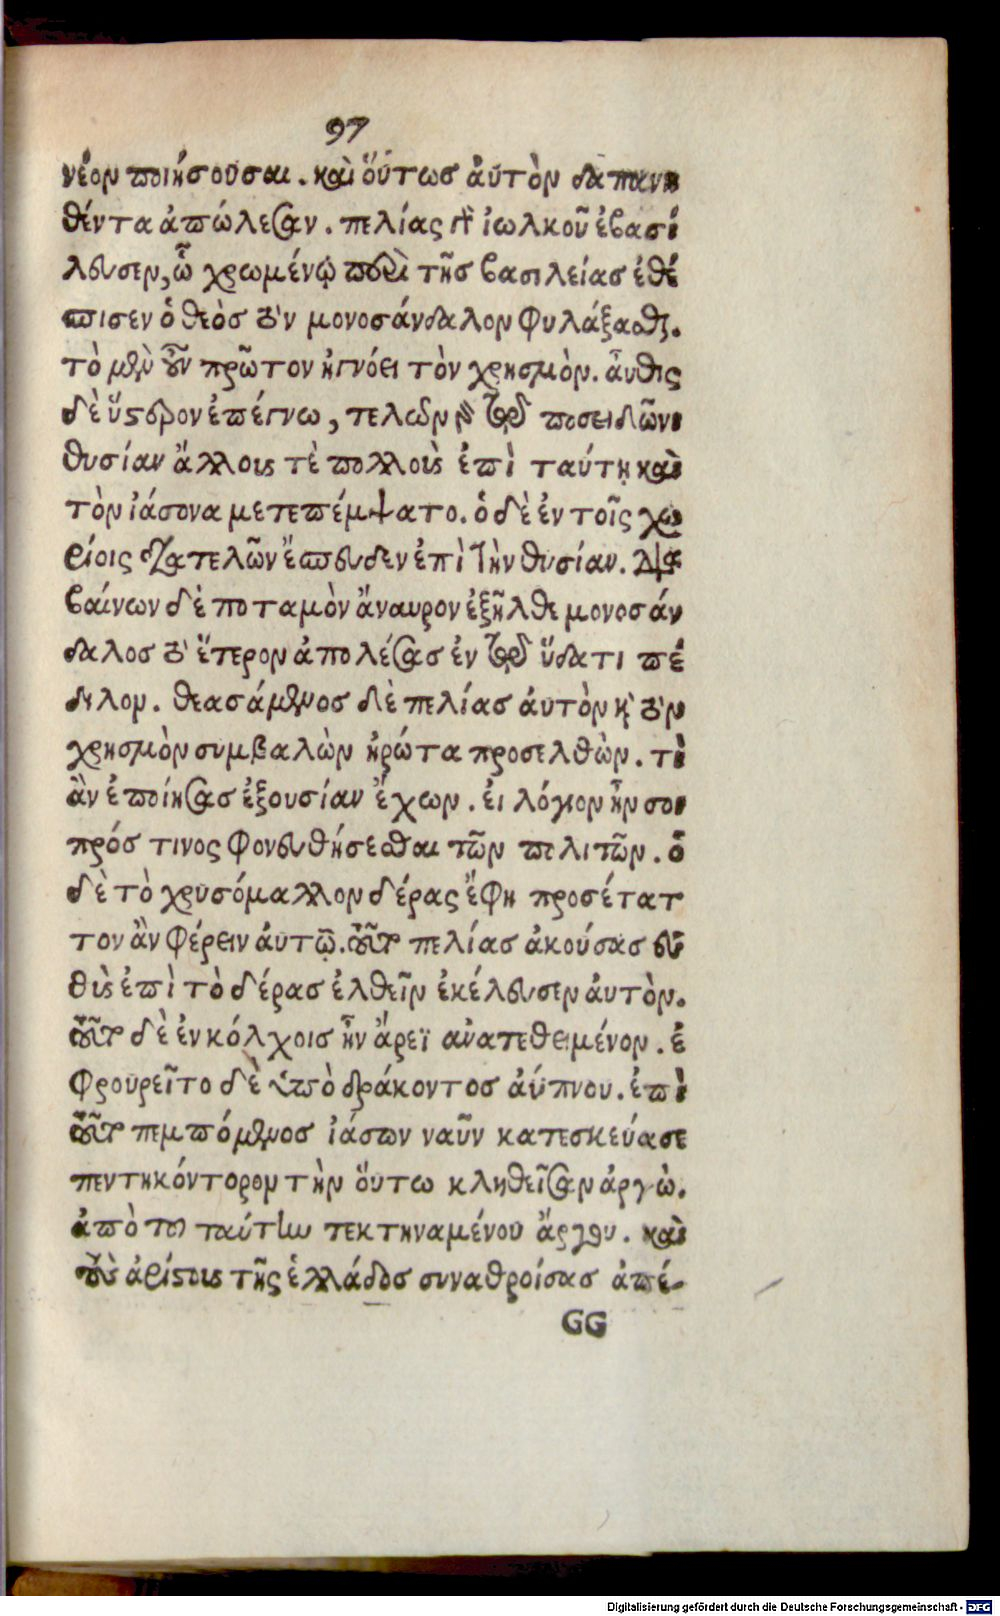 97
νέον ποιήσουσαι. καὶ ὅύτως ἀύτὸν δαπανη
θέντα ἀπώλεσαν. πελίας δὲ ἰωλκοῦ ἐβασί
λευσεν, ᾧ χρωμένῳ περὶ τῆς βασιλείας ἐθέ
σπισεν ὁ θεὸς τὸν μονοσάνδαλον φυλάξασθαι.
τὸ μὲν οὖν πρῶτον ἠγνόει τὸν χρησμὸν. ἆυθις
δὲ ὕστερον ἐπέγνω, τελῶν γὰρ τῷ ποσειδῶνι
θυσίαν ἄλλους τὲ πολλοὺς ἐπὶ ταύτῃ καὶ
τὸν ἰάσονα μετεπέμψατο. ὁ δὲ ἐν τοῖς χω
ρίοις διατελῶν ἔσπευδεν ἐπὶ τὴν θυσίαν. δια
βαίνων δὲ ποταμὸν ἄναυρον ἐξῆλθε μονοσάν
δαλος τὸ ἕτερον ἀπολέσας ἐν τῷ ὕδατι πέ
διλον. θεασάμενος δὲ πελίας ἀυτὸν καὶ τὸν
χρησμὸν συμβαλὼν ἠρώτα προσελθὼν. τὶ
ἂν ἐποίησας ἐξουσίαν ἔχων. ἐι λόγιον ἦν σοι
πρός τινος φονευθήσεσθαι τῶν πολιτῶν. ὃ
δὲ τὸ χρυσόμαλλον δέρας ἔφη προσέτατ
τον ἂν φέρειν ἀυτῷ. τοῦτο πελίας ἀκούσας εὐ
θὺς ἐπὶ τὸ δέρας ἐλθεῖν ἐκέλευσεν ἀυτὸν.
τοῦτο δὲ ἐν κόλχοις ἦν ἄρεϊ ἀνατεθειμένον. ἐ
φρουρεῖτο δὲ ὑπὸ δράκοντος ἀύπνου. ἐπὶ
τοῦτο πεμπόμενος ἰάσων ναῦν κατεσκεύασε
πεντηκόντορον τὴν ὅυτω κληθεῖσαν ἀργὼ.
ἀπὸ τοῦ ταύτην τεκτηναμένου ἄργου. καὶ
τοὺς ἀρίστους τῆς ἑλλάδος συναθροίσας ἀπέ-
GG
Digitalisierung gefördert durch die Deutsche Forschungsgemeinschaft - DFG